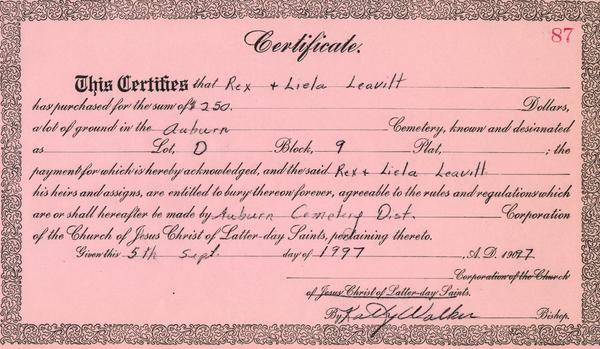 87
Certificate.
This Certifies that Rex + Liela Leavitt
has purchased for the sum of $250. Dollars,
a lot of ground in the Auburn Cemetery, known and desianated
as Lot, D Block, 9 Plat, ; the
payment for which is hereby acknowledged, and the said Rex + Liela Leavitt
his heirs and assigns, are entitled to bury thereon forever, agreeable to the rules and regulations which
are or shall hereafter be made by Auburn Cemetery Dist. Corporation
of the Church of Jesus Christ of Latter-day Saints, pertaining thereto.
Given this 5th Sept. day of 1997 , A.D. 1997
Corporation of the Church
of Jesus Christ of Latter-day Saints.
By Kathy Walker Bishop.